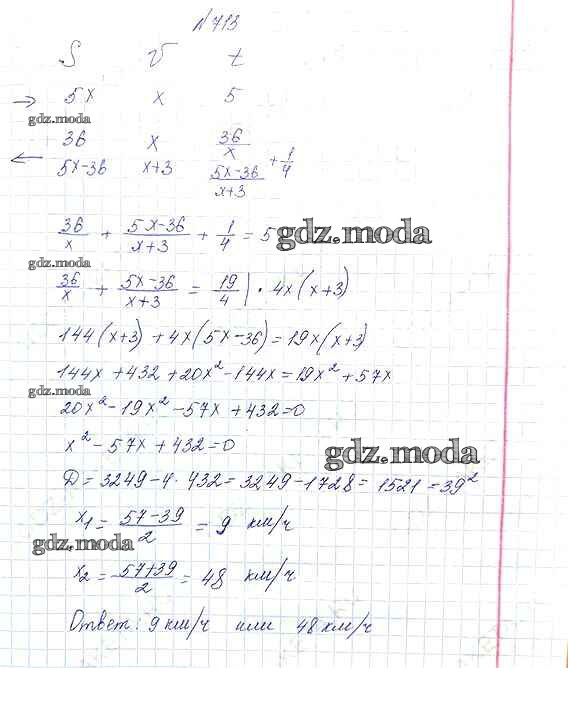 N 713
S V t
→ 5x x 5
gdz.moda
36 x 36/x
← 5x-36 x+3 (5x-36)/(x+3) + 1/4
36/x + (5x-36)/(x+3) + 1/4 = 5 gdz.moda
gdz.moda
36/x + (5x-36)/(x+3) = 19/4 | · 4x(x+3)
144(x+3) + 4x(5x-36) = 19x(x+3)
144x + 432 + 20x² - 144x = 19x² + 57x
gdz.moda
20x² - 19x² - 57x + 432 = 0
x² - 57x + 432 = 0
gdz.moda
D = 3249 - 4 · 432 = 3249 - 1728 = 1521 = 39²
x₁ = (57-39)/2 = 9 км/ч
gdz.moda
x₂ = (57+39)/2 = 48 км/ч
Ответ: 9 км/ч или 48 км/ч